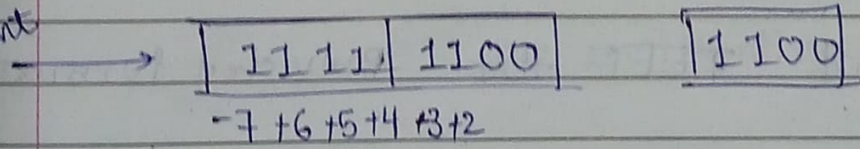 nt → 1111 1100 1100
-7+6+5+4+3+2